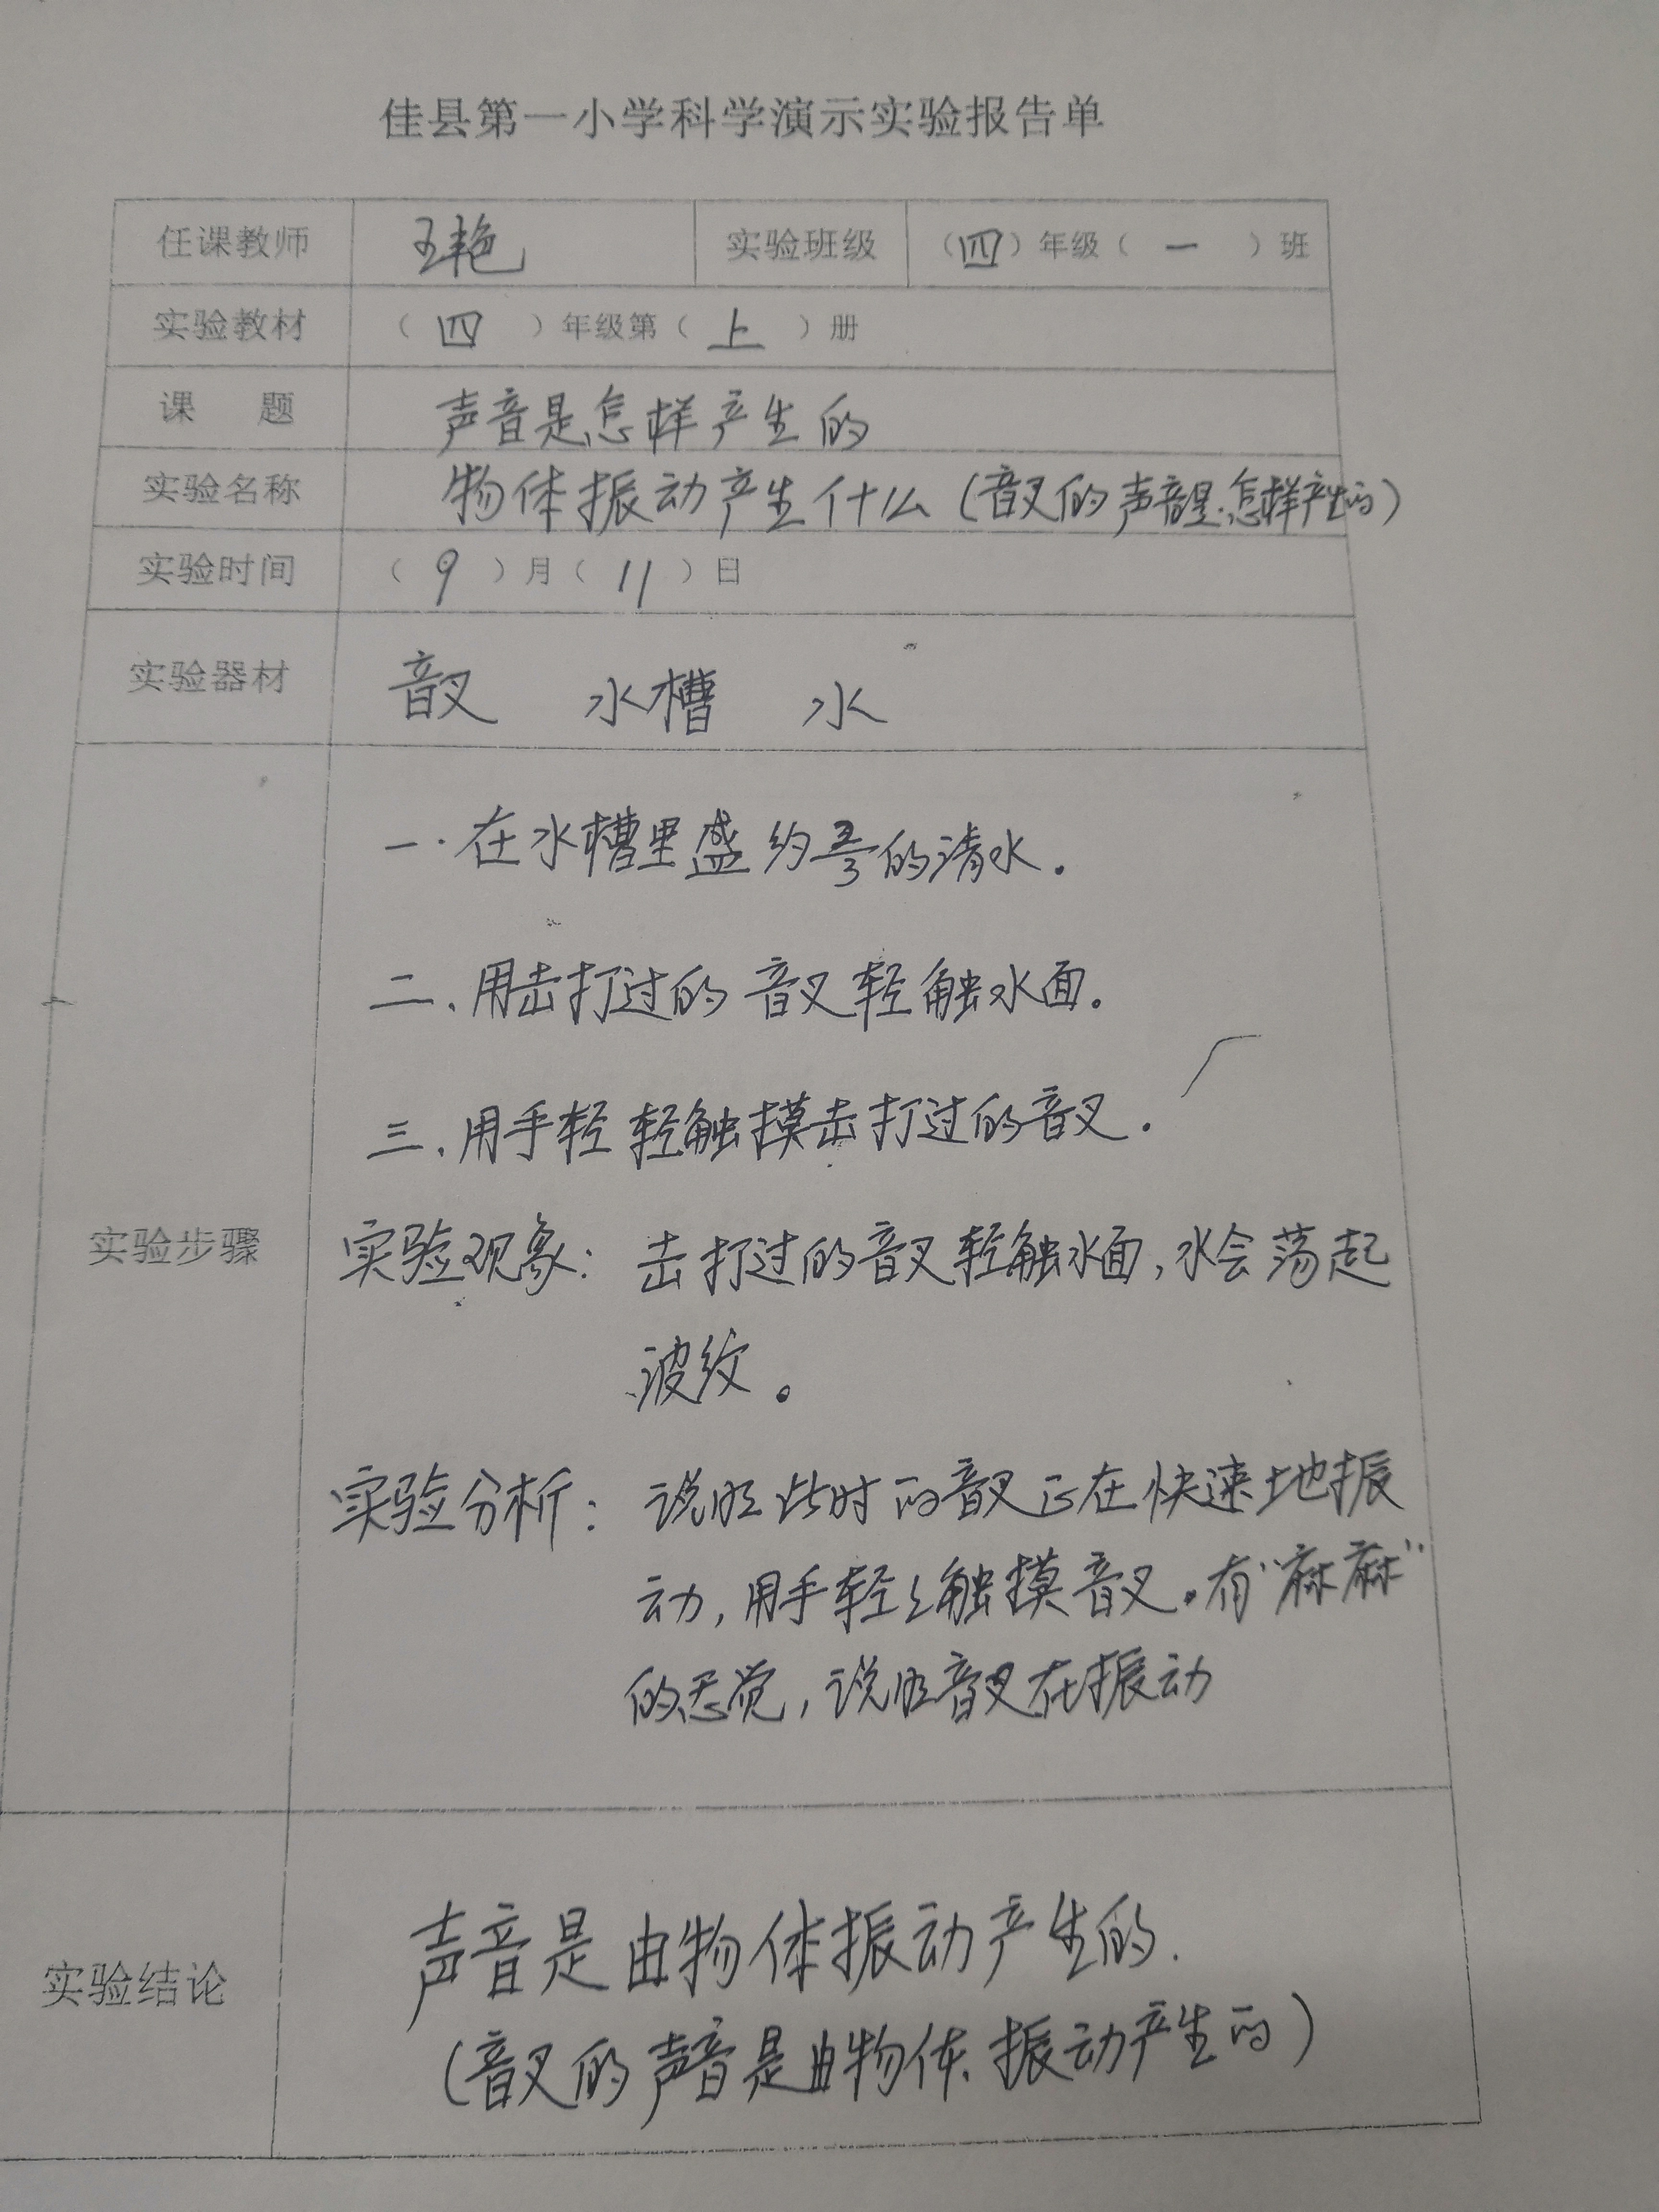 佳县第一小学科学演示实验报告单
任课教师 王艳 实验班级 （四）年级（一）班
实验教材 （四）年级第（上）册
课 题 声音是怎样产生的
实验名称 物体振动产生什么（音叉的声音是怎样产生的）
实验时间 （9）月（11）日
实验器材 音叉 水槽 水
一.在水槽里盛约2/3的清水.
二.用击打过的音叉轻触水面.
三.用手轻轻触摸击打过的音叉.
实验步骤 实验现象：击打过的音叉轻触水面,水会荡起
波纹。
实验分析：说明此时的音叉正在快速地振
动,用手轻轻触摸音叉。有“麻麻”
的感觉,说明音叉在振动
声音是由物体振动产生的.
实验结论
（音叉的声音是由物体振动产生的）